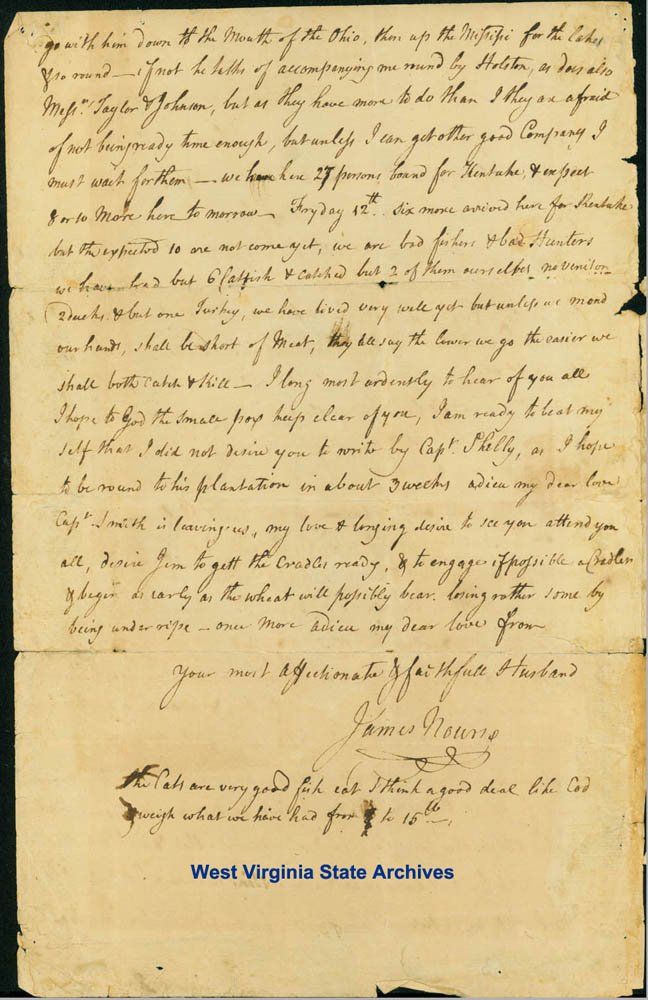 go with him down to the Mouth of the Ohio, then up the Missisipi for the lakes
& so round — if not he talks of accompanying me round by Holston, as does also
Messrs. Taylor & Johnson, but as they have more to do than I they are afraid
of not being ready time enough, but unless I can get other good Company I
must wait for them — we have here 27 persons bound for Kentuke, & expect
8 or 10 More here to morrow — Fryday 12th. six more arived here for Kentuke
but the expected 10 are not come yet, we are bad fishers & bad Hunters
we have had but 6 Catfish & catched but 2 of them ourselves no venison
2 ducks & but one Turkey, we have lived very well yet but unless we mend
our hands, shall be short of Meat, they all say the lower we go the easier we
shall both Catch & Kill — I long most ardently to hear of you all
I hope to God the small pox keep clear of you, I am ready to beat my
self that I did not desire you to write by Capt. Shelly, as I hope
to be round to his plantation in about 3 weeks adieu my dear love
Capt. Smith is leaving us, my love & longing desire to see you attend you
all, desire Jem to gett the Cradles ready, & to engage if possible a Cradler
& begin as early as the wheat will possibly bear. losing rather some by
being under ripe — once More adieu my dear love from
your most affectionate & faithfull Husband
James Nourse
the Cats are very good fish eat I think a good deal like Cod
& weigh what we have had from to 15 lb.
West Virginia State Archives